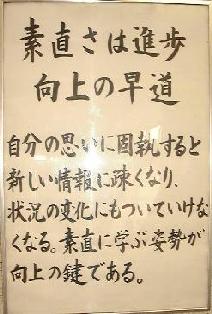 素直さは進歩
向上の早道
自分の思いに固執すると
新しい情報に疎くなり、
状況の変化にもついていけな
くなる。素直に学ぶ姿勢が
向上の鍵である。